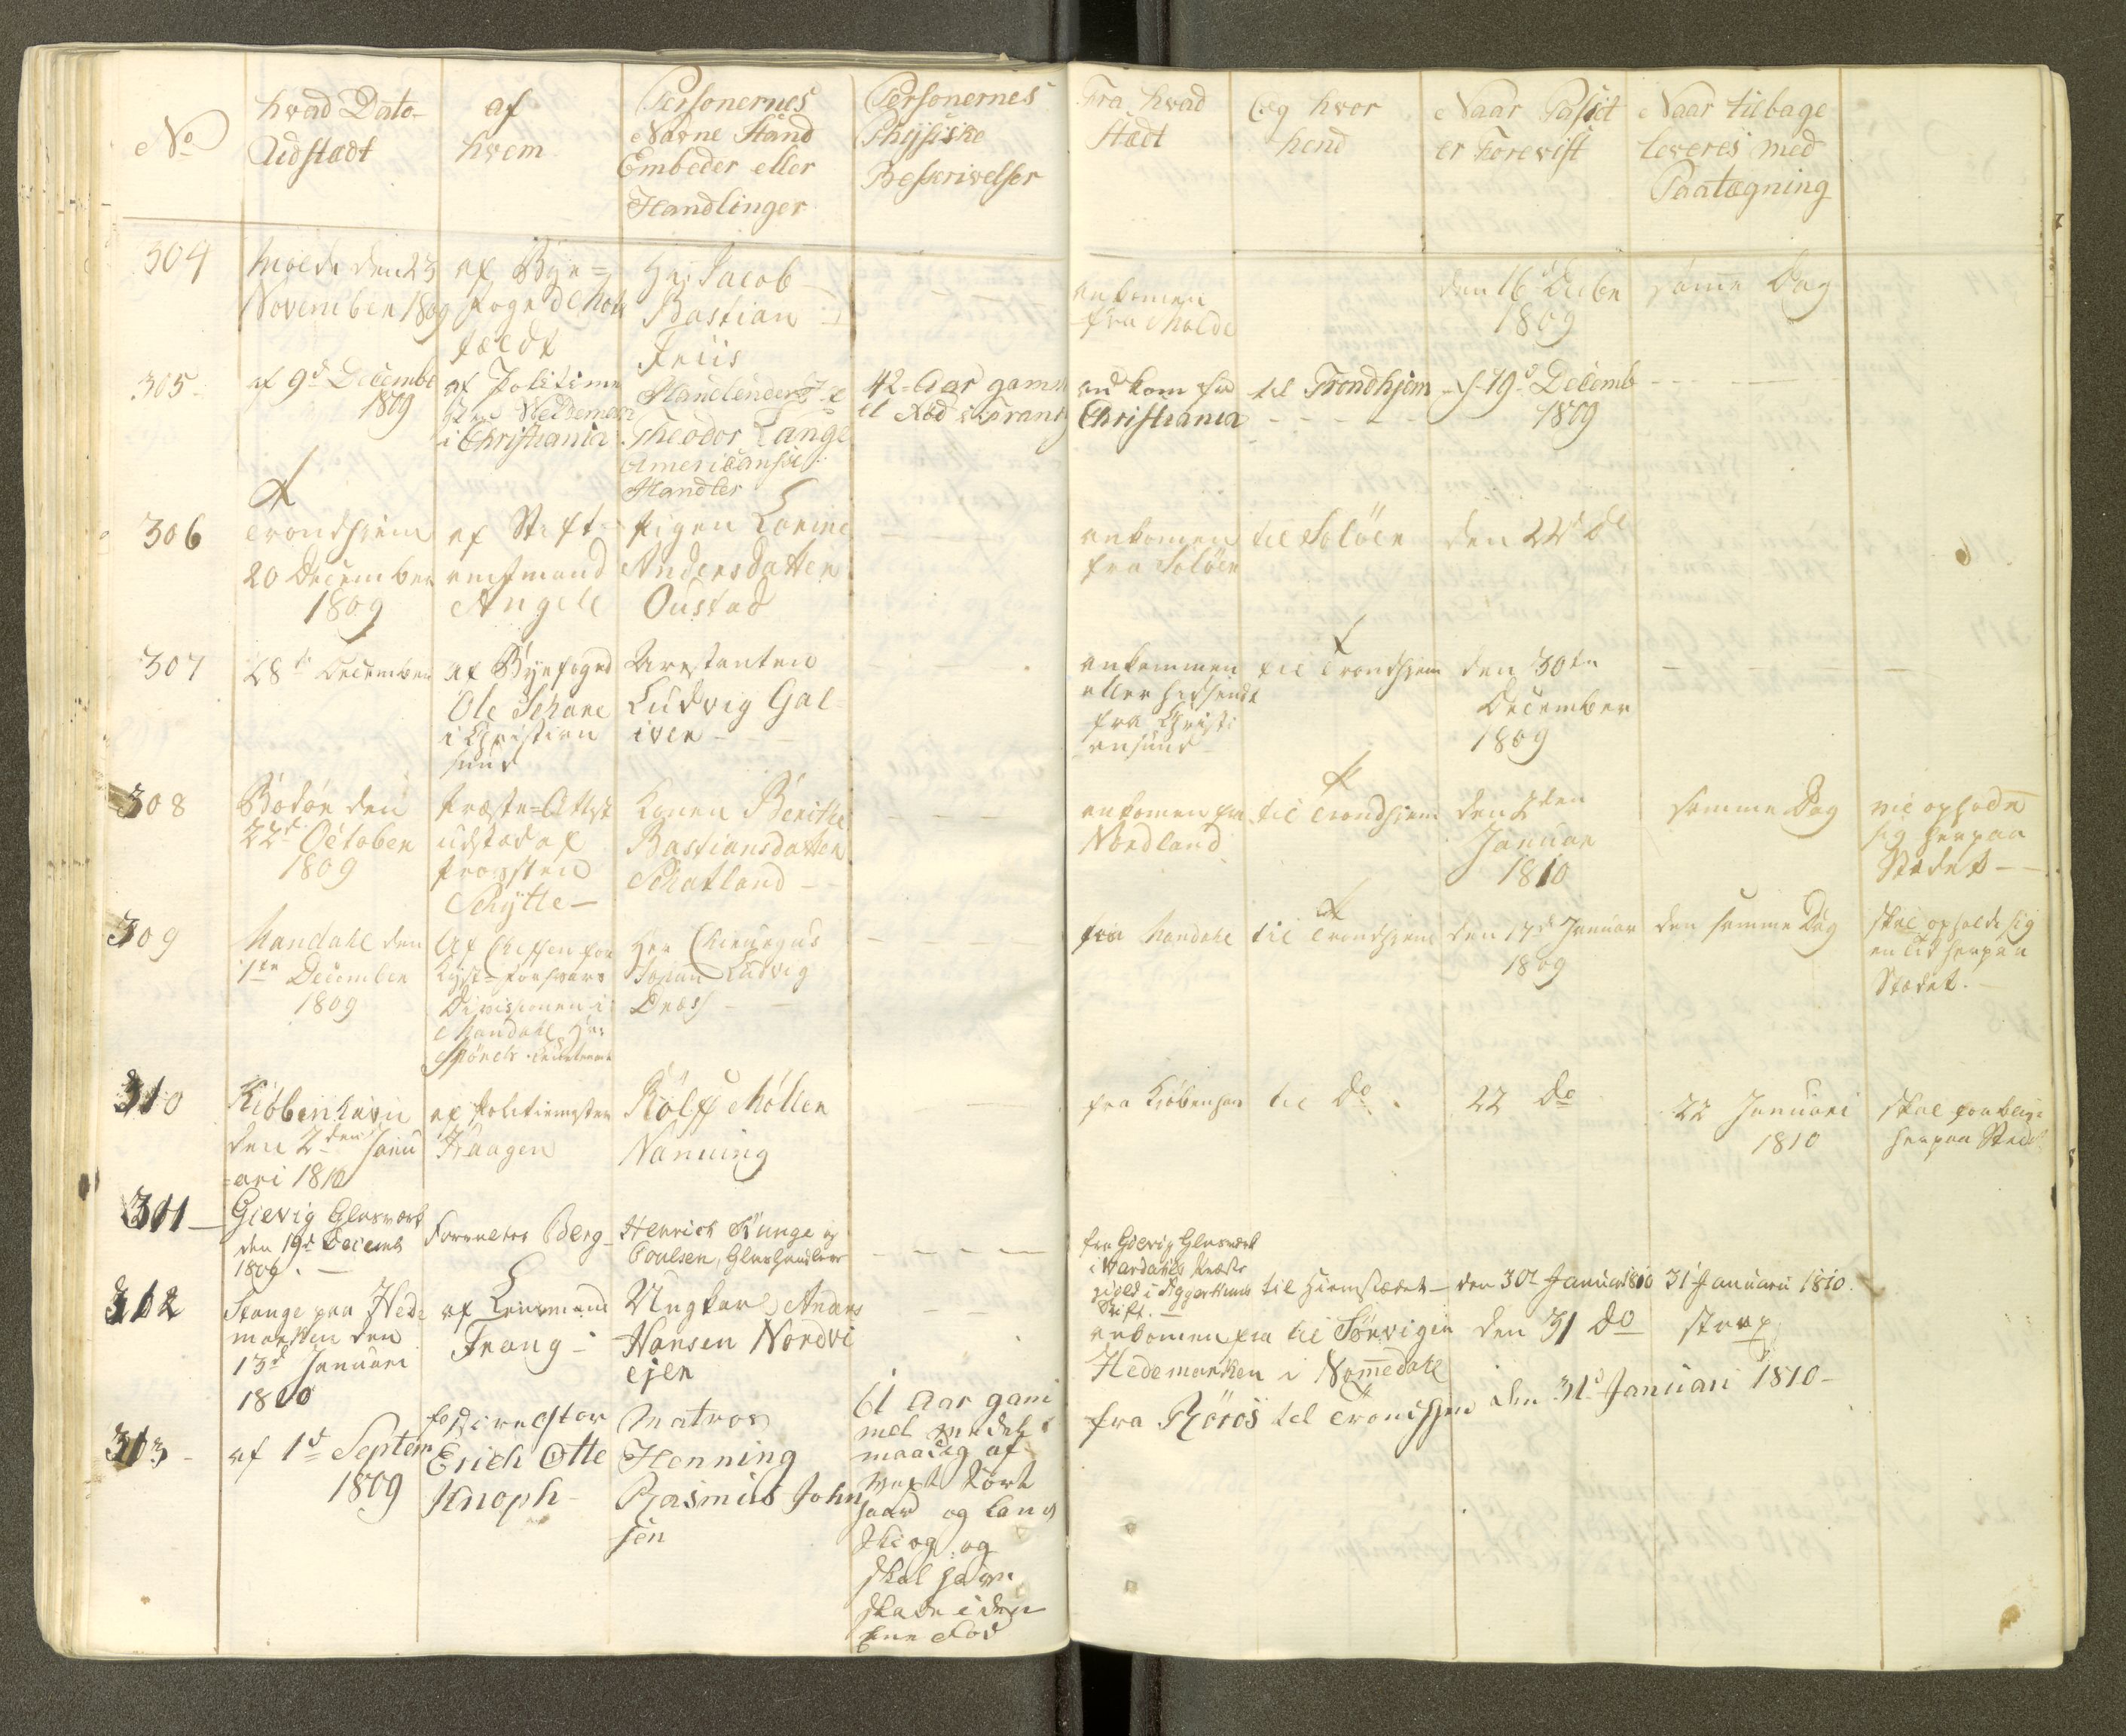 No
hvad Dato
Udstædt
af
hvem
Personernes
Navne Stand
Embeder eller
Handlinger
Personernes
Physiske
Beskrivelser
Fra hvad
Stædt
og hvor
hend
Naar Passet
er Forevist
Naar tilbage
leveres med
Paategning
304
Molde den 23
November 1809
af Bye=
foged
Hr Jacob
Bastian
Friis
ankomen
fra Molde
den 16d Decbr
1809
samme Dag
305
af 9d Decembr
1809
af Politime
i Christiania
Theodor Lange
Americansk
Handler
42 Aar gamel
ankom fra
Christiania
til Trondhjem
d 19d Decemb
1809
306
Trondhjem
20 December
1809
af Stift
amtmand
Angell
Pigen Lorine
Andersdatter
Oustad
ankomen
fra Soløer
til Soløer
den 22d do
307
28de December
af Byefoged
Ole Schare
i Christian
sund
Arrestanten
Ludvig Gal
iver
ankommen
eller hidsendt
fra Christi
ansund
til Trondhjem
den 30te
December
1809
308
Bodøe den
22d October
1809
Præste=Attest
udstæd af
Provsten
Schytte
Konen Berithe
Bastiansdatter
Schatland
ankomen fra
Nordland
til Trondhjem
den 2den
Januar
1810
samme Dag
vil opholde
sig her paa
Stædet
309
Mandahl den
1te December
1809
Af Cheffen for
Kyst=Forsvars
Divisionen i
Mandahl Hr
Hr Chirurgus
Johan Ludvig
Dræs
fra Mandahl
til Trondhjem
den 17d Januar
1809
den samme Dag
skal opholde sig
en tid her paa
Stædet.
310
Kiøbenhavn
den 2den Janu
=ari 1810
af Politimester
Haagen
Rolff Møller
Nanning
fra Kiøbenhavn
til do
22 do
22 Januari
1810
skal forblive
her paa Stædet
311
Gievig Glasværk
den 19d Decemb
1809.
Forvalter Berg
Henrich Runge og
Poulsen, Glashandler
fra Gievig Glasværk
i Vardahls Præste
gield i Aggershuus
Stift.
til Hiemstædet
den 30t Januar 1810
31 Januari 1810.
312
Stange paa Hede
marken den
13d Januari
1810
af Lensmand
Frang
Ungkarl Anders
Hansen Nordvi
ejen
ankomen fra
Hedemarken
til Sørvigen
i Nommedahl
den 31 do
strax
313
af 1d Septem
1809
Directør
Erich Otte
Knoph
Matros
Henning
Rasmus John
sen
61 Aar gam
mel middel
maadig af
Vext kort
haar og lang
Skieg og
skal have
skade i den
ene Fod
fra Røros til Trondhjem
den 31d Januari 1810